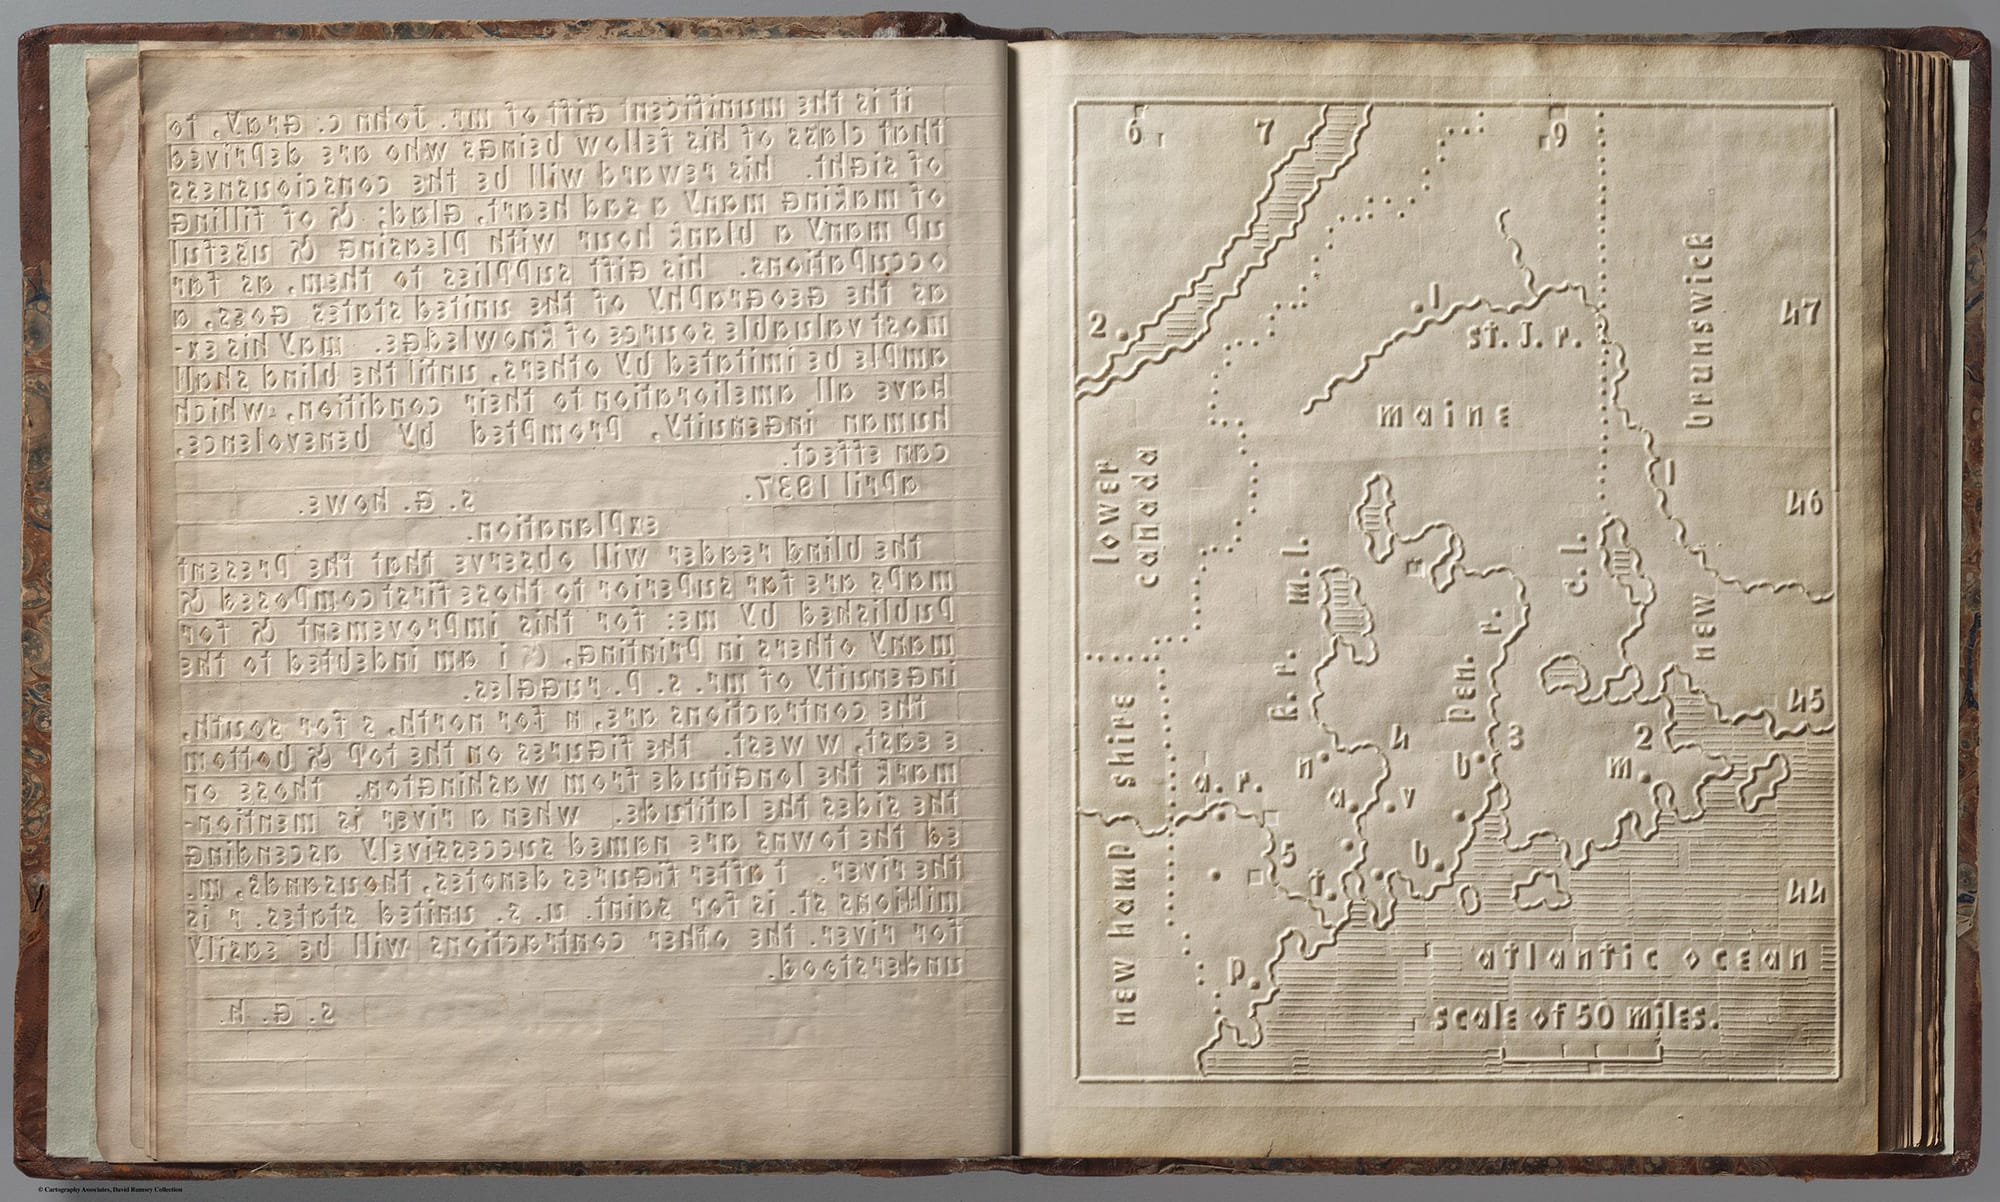 it is the munificent gift of mr. John c. Gray, to
that class of his fellow beings who are deprived
of sight. his reward will be the consciousness
of making many a sad heart, glad; & of filling
up many a blank hour with pleasing & useful
occupations. his gift supplies to them, as far
as the geography of the united states goes, a
most valuable source of knowledge. may his ex-
ample be imitated by others, until the blind shall
have all amelioration to their condition, which
human ingenuity, prompted by benevolence,
can effect.
april 1837.
s. G. howe.
explanation.
the blind reader will observe that the present
maps are far superior to those first composed &
published by me: for this improvement & for
many others in printing, & i am indebted to the
ingenuity of mr. s. p. ruggles.
the contractions are, n for north, s for south,
e east, w west. the figures on the top & bottom
mark the longitude from washington. those on
the sides the latitude. when a river is mention-
ed the towns are named successively ascending
the river. t after figures denotes, thousands, m.
millions st. is for saint. u. s. united states. r is
for river. the other contractions will be easily
understood.
s. G. h.
6 7 9
2.
.1
st. J. r.
47
brunswick
maine
lower
canada
1
46
m. l.
c. l.
new
k. r.
pen. r.
45
new hamp shire
4
3
2
n
b
m.
a. r.
a. v
5
b.
f.
44
p.
atlantic ocean
scale of 50 miles.
© Cartography Associates, David Rumsey Collection